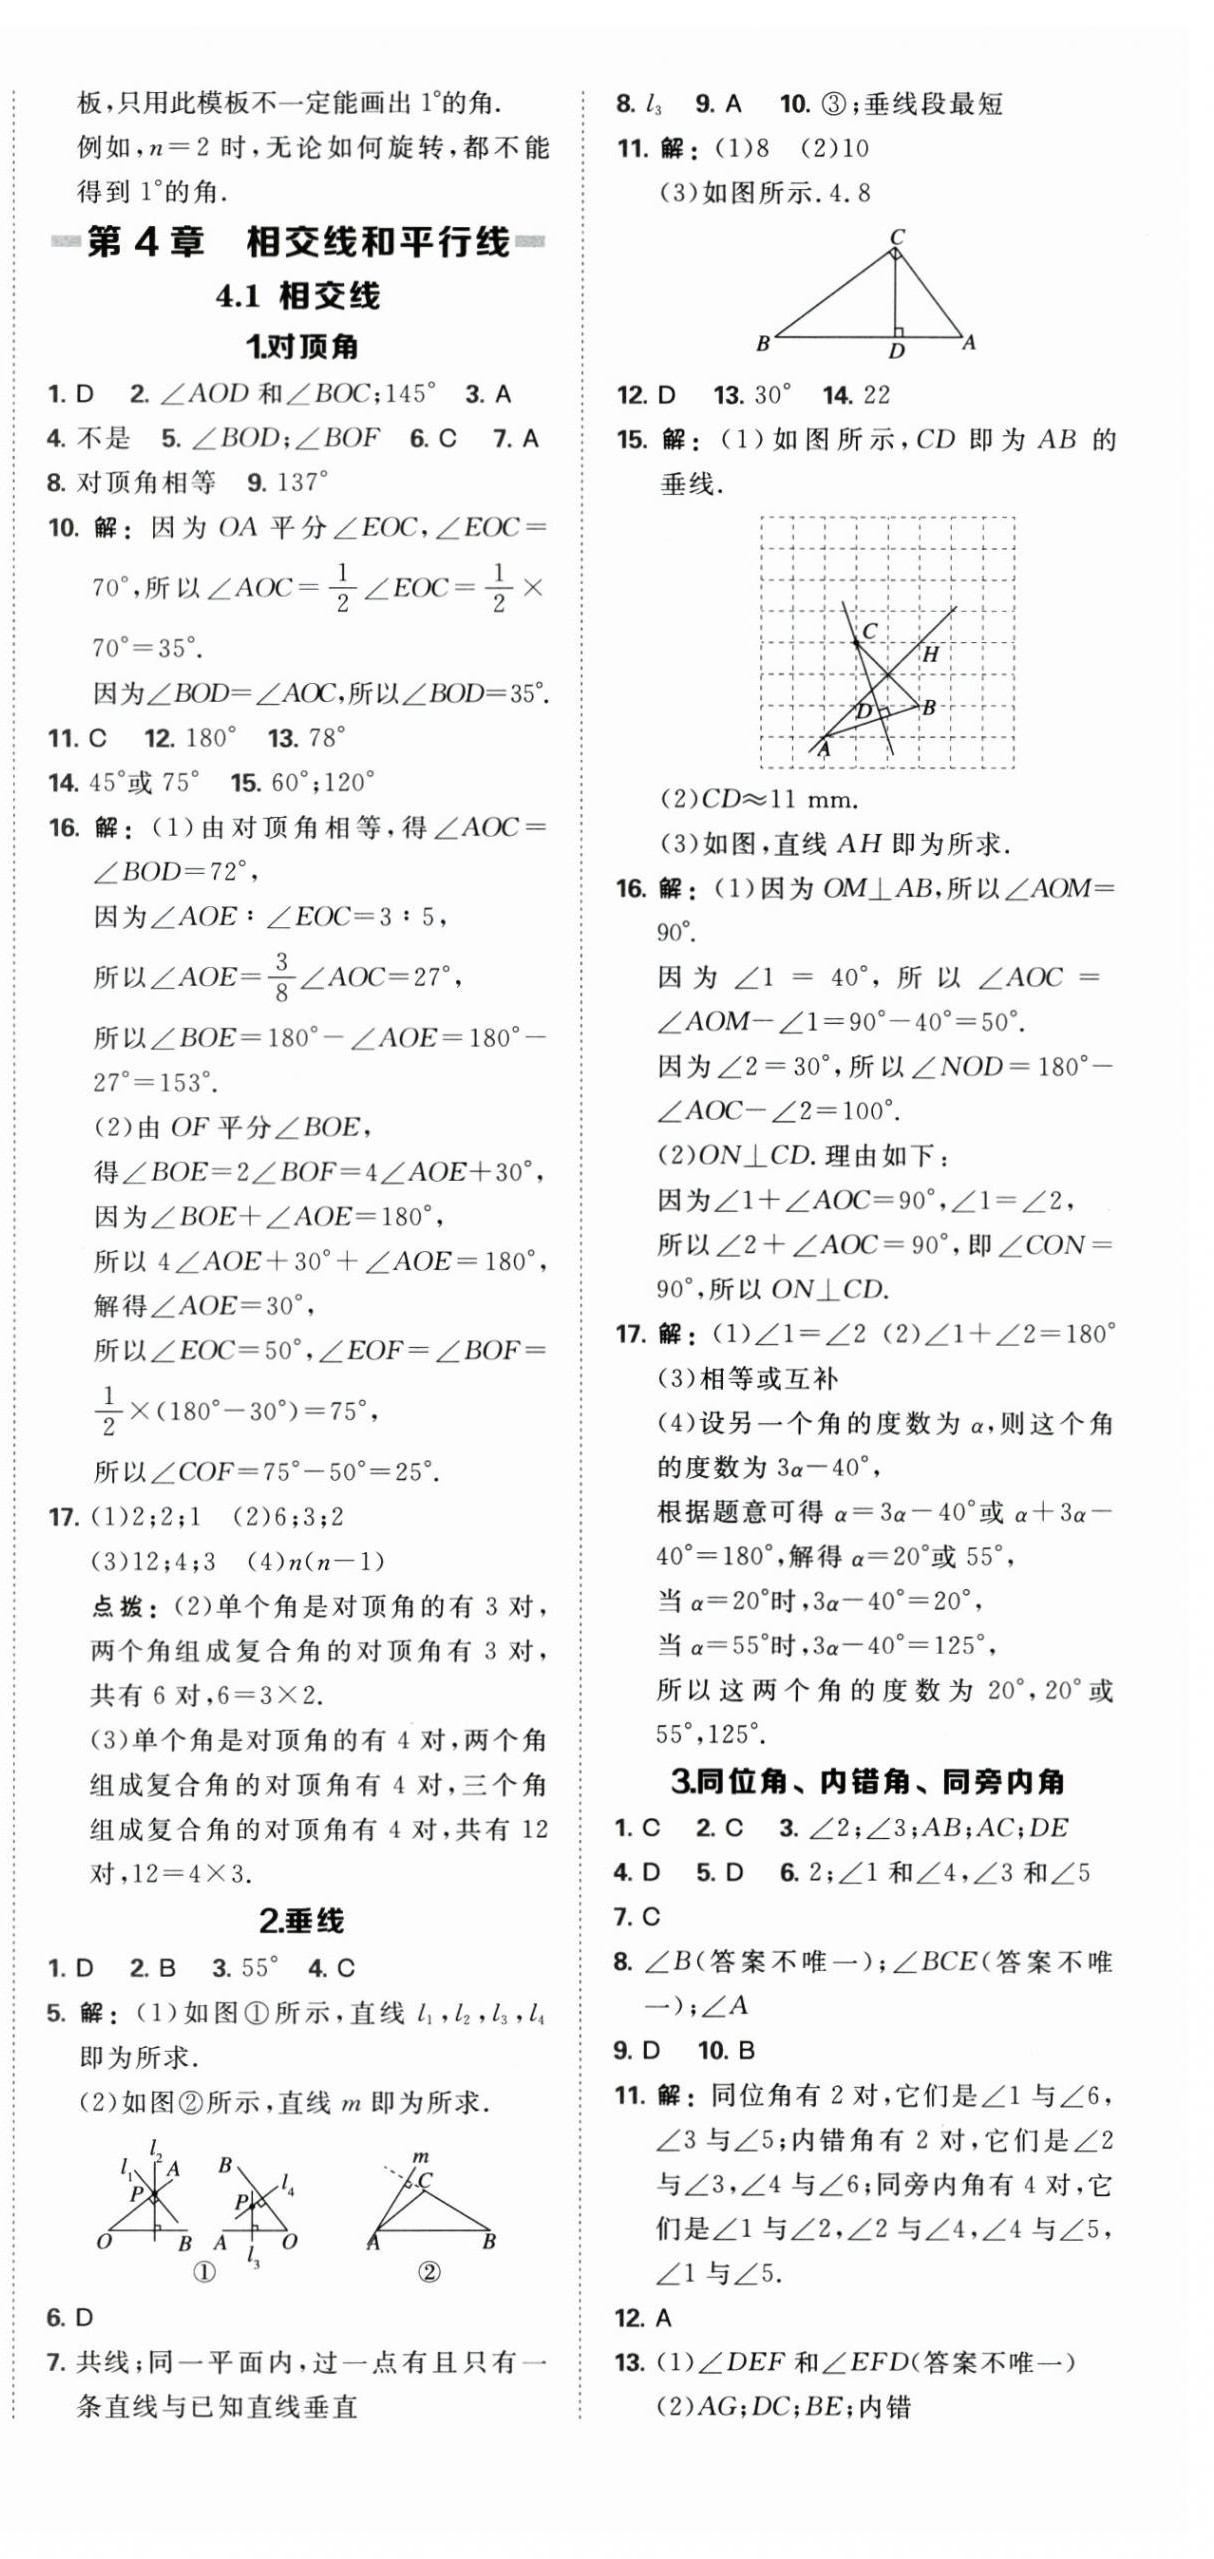 板,只用此模板不一定能画出 1°的角.
例如,n=2 时,无论如何旋转,都不能
得到 1°的角.
第 4 章 相交线和平行线
4.1 相交线
1.对顶角
1. D 2. ∠AOD 和∠BOC;145° 3. A
4. 不是 5. ∠BOD;∠BOF 6. C 7. A
8. 对顶角相等 9. 137°
10. 解: 因为 OA 平分∠EOC,∠EOC=
70°,所以∠AOC=1/2∠EOC=1/2×
70°=35°.
因为∠BOD=∠AOC,所以∠BOD=35°.
11. C 12. 180° 13. 78°
14. 45°或 75° 15. 60°;120°
16. 解:(1)由对顶角相等,得∠AOC=
∠BOD=72°,
因为∠AOE∶∠EOC=3∶5,
所以∠AOE=3/8∠AOC=27°,
所以∠BOE=180°-∠AOE=180°-
27°=153°.
(2)由 OF 平分∠BOE,
得∠BOE=2∠BOF=4∠AOE+30°,
因为∠BOE+∠AOE=180°,
所以 4∠AOE+30°+∠AOE=180°,
解得∠AOE=30°,
所以∠EOC=50°,∠EOF=∠BOF=
1/2×(180°-30°)=75°,
所以∠COF=75°-50°=25°.
17. (1)2;2;1 (2)6;3;2
(3)12;4;3 (4)n(n-1)
点拨:(2)单个角是对顶角的有 3 对,
两个角组成复合角的对顶角有 3 对,
共有 6 对,6=3×2.
(3)单个角是对顶角的有 4 对,两个角
组成复合角的对顶角有 4 对,三个角
组成复合角的对顶角有 4 对,共有 12
对,12=4×3.
2.垂线
1. D 2. B 3. 55° 4. C
5. 解:(1)如图①所示,直线 l₁,l₂,l₃,l₄
即为所求.
(2)如图②所示,直线 m 即为所求.
l₁ l₂ A P O B
B l₄ P A l₃ O
①
m C A B
②
6. D
7. 共线;同一平面内,过一点有且只有一
条直线与已知直线垂直
8. l₃ 9. A 10. ③;垂线段最短
11. 解:(1)8 (2)10
(3)如图所示. 4.8
C
B D A
12. D 13. 30° 14. 22
15. 解:(1)如图所示,CD 即为 AB 的
垂线.
C
H
D B
A
(2)CD≈11 mm.
(3)如图,直线 AH 即为所求.
16. 解:(1)因为 OM⊥AB,所以∠AOM=
90°.
因为 ∠1 = 40°, 所以 ∠AOC =
∠AOM-∠1=90°-40°=50°.
因为∠2=30°,所以∠NOD=180°-
∠AOC-∠2=100°.
(2)ON⊥CD. 理由如下:
因为∠1+∠AOC=90°,∠1=∠2,
所以∠2+∠AOC=90°,即∠CON=
90°,所以 ON⊥CD.
17. 解:(1)∠1=∠2 (2)∠1+∠2=180°
(3)相等或互补
(4)设另一个角的度数为 α,则这个角
的度数为 3α-40°,
根据题意可得 α=3α-40°或 α+3α-
40°=180°,解得 α=20°或 55°,
当 α=20°时,3α-40°=20°,
当 α=55°时,3α-40°=125°,
所以这两个角的度数为 20°,20°或
55°,125°.
3.同位角、内错角、同旁内角
1. C 2. C 3. ∠2;∠3;AB;AC;DE
4. D 5. D 6. 2;∠1 和∠4,∠3 和∠5
7. C
8. ∠B(答案不唯一);∠BCE(答案不唯
一);∠A
9. D 10. B
11. 解: 同位角有 2 对,它们是∠1 与∠6,
∠3 与∠5;内错角有 2 对,它们是∠2
与∠3,∠4 与∠6;同旁内角有 4 对,它
们是∠1 与∠2,∠2 与∠4,∠4 与∠5,
∠1 与∠5.
12. A
13. (1)∠DEF 和∠EFD(答案不唯一)
(2)AG;DC;BE;内错